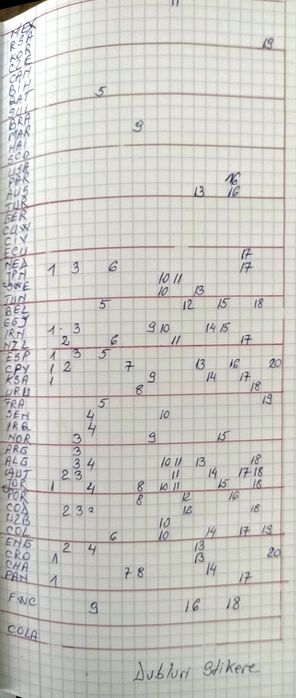 11
MEX
RSA 19
KOR
CZE
CAN
BIH 5
QAT
SUI
BRA 9
MAR
HAI
SCO
USA
PAR 16
AUS 13 16
TUR
GER
CUW
CIV
ECU 17
NED 1 3 6 17
JPN 10 11
SWE 10 13
TUN 5 12 15 18
BEL
EGY 1 3 9 10 14 15
IRN 2 6 11 17
NZL 1 3 5
ESP 1 2 7 13 16 20
CPV 1 9 14 17
KSA 8 18
URU 5 19
FRA 4 10
SEN 4
IRQ 3 9 15
NOR 3
ARG 3 4 10 11 13 18
ALG 2 3 11 14 17 18
AUT 1 4 8 10 11 15 18
JOR 8 12 16
POR 2 3 12 18
COD 10
UZB 6 10 14 17 19
COL 2 4 13
ENG 1 13 20
CRO 7 8 14
GHA 1 17
PAN
FWC 9 16 18
COLA
Dubluri Stikere